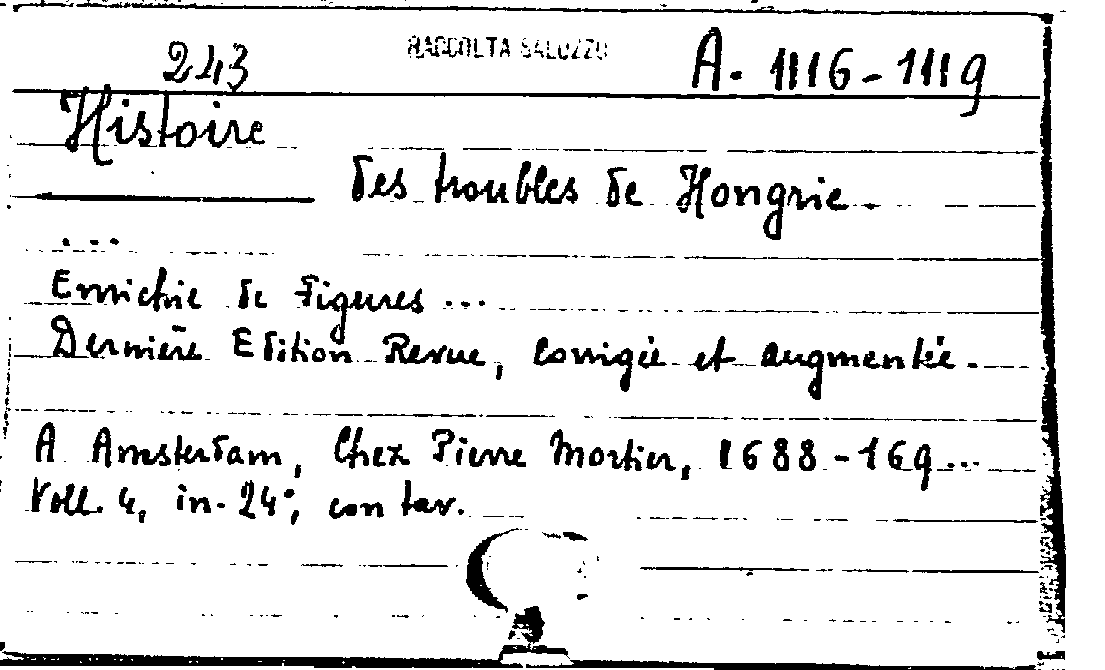 243 RACCOLTA SALUZZO A. 1116-1119
Histoire
des troubles de Hongrie.
...
Enrichie de Figures ...
Dernière Edition Revue, Corrigée et augmentée.
A Amsterdam, Chez Pierre Mortier, 1688-169...
Voll. 4, in-24°, con tav.